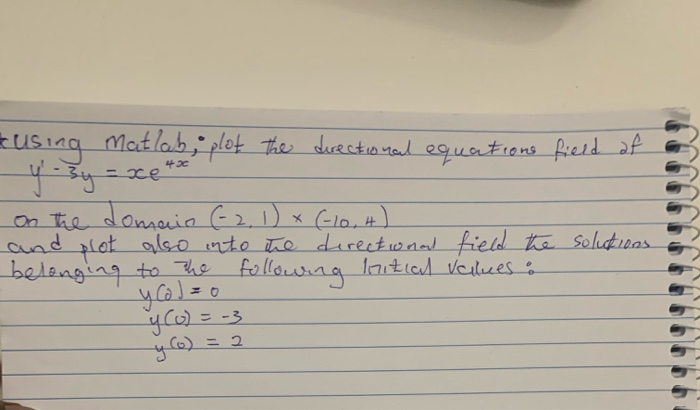 * using Matlab, plot the directional equations field of
y' - 3y = xe^4x
on the domain (-2, 1) × (-10, 4)
and plot also into the directional field the solutions
belonging to the following Initial values :
y(0) = 0
y(0) = -3
y(0) = 2